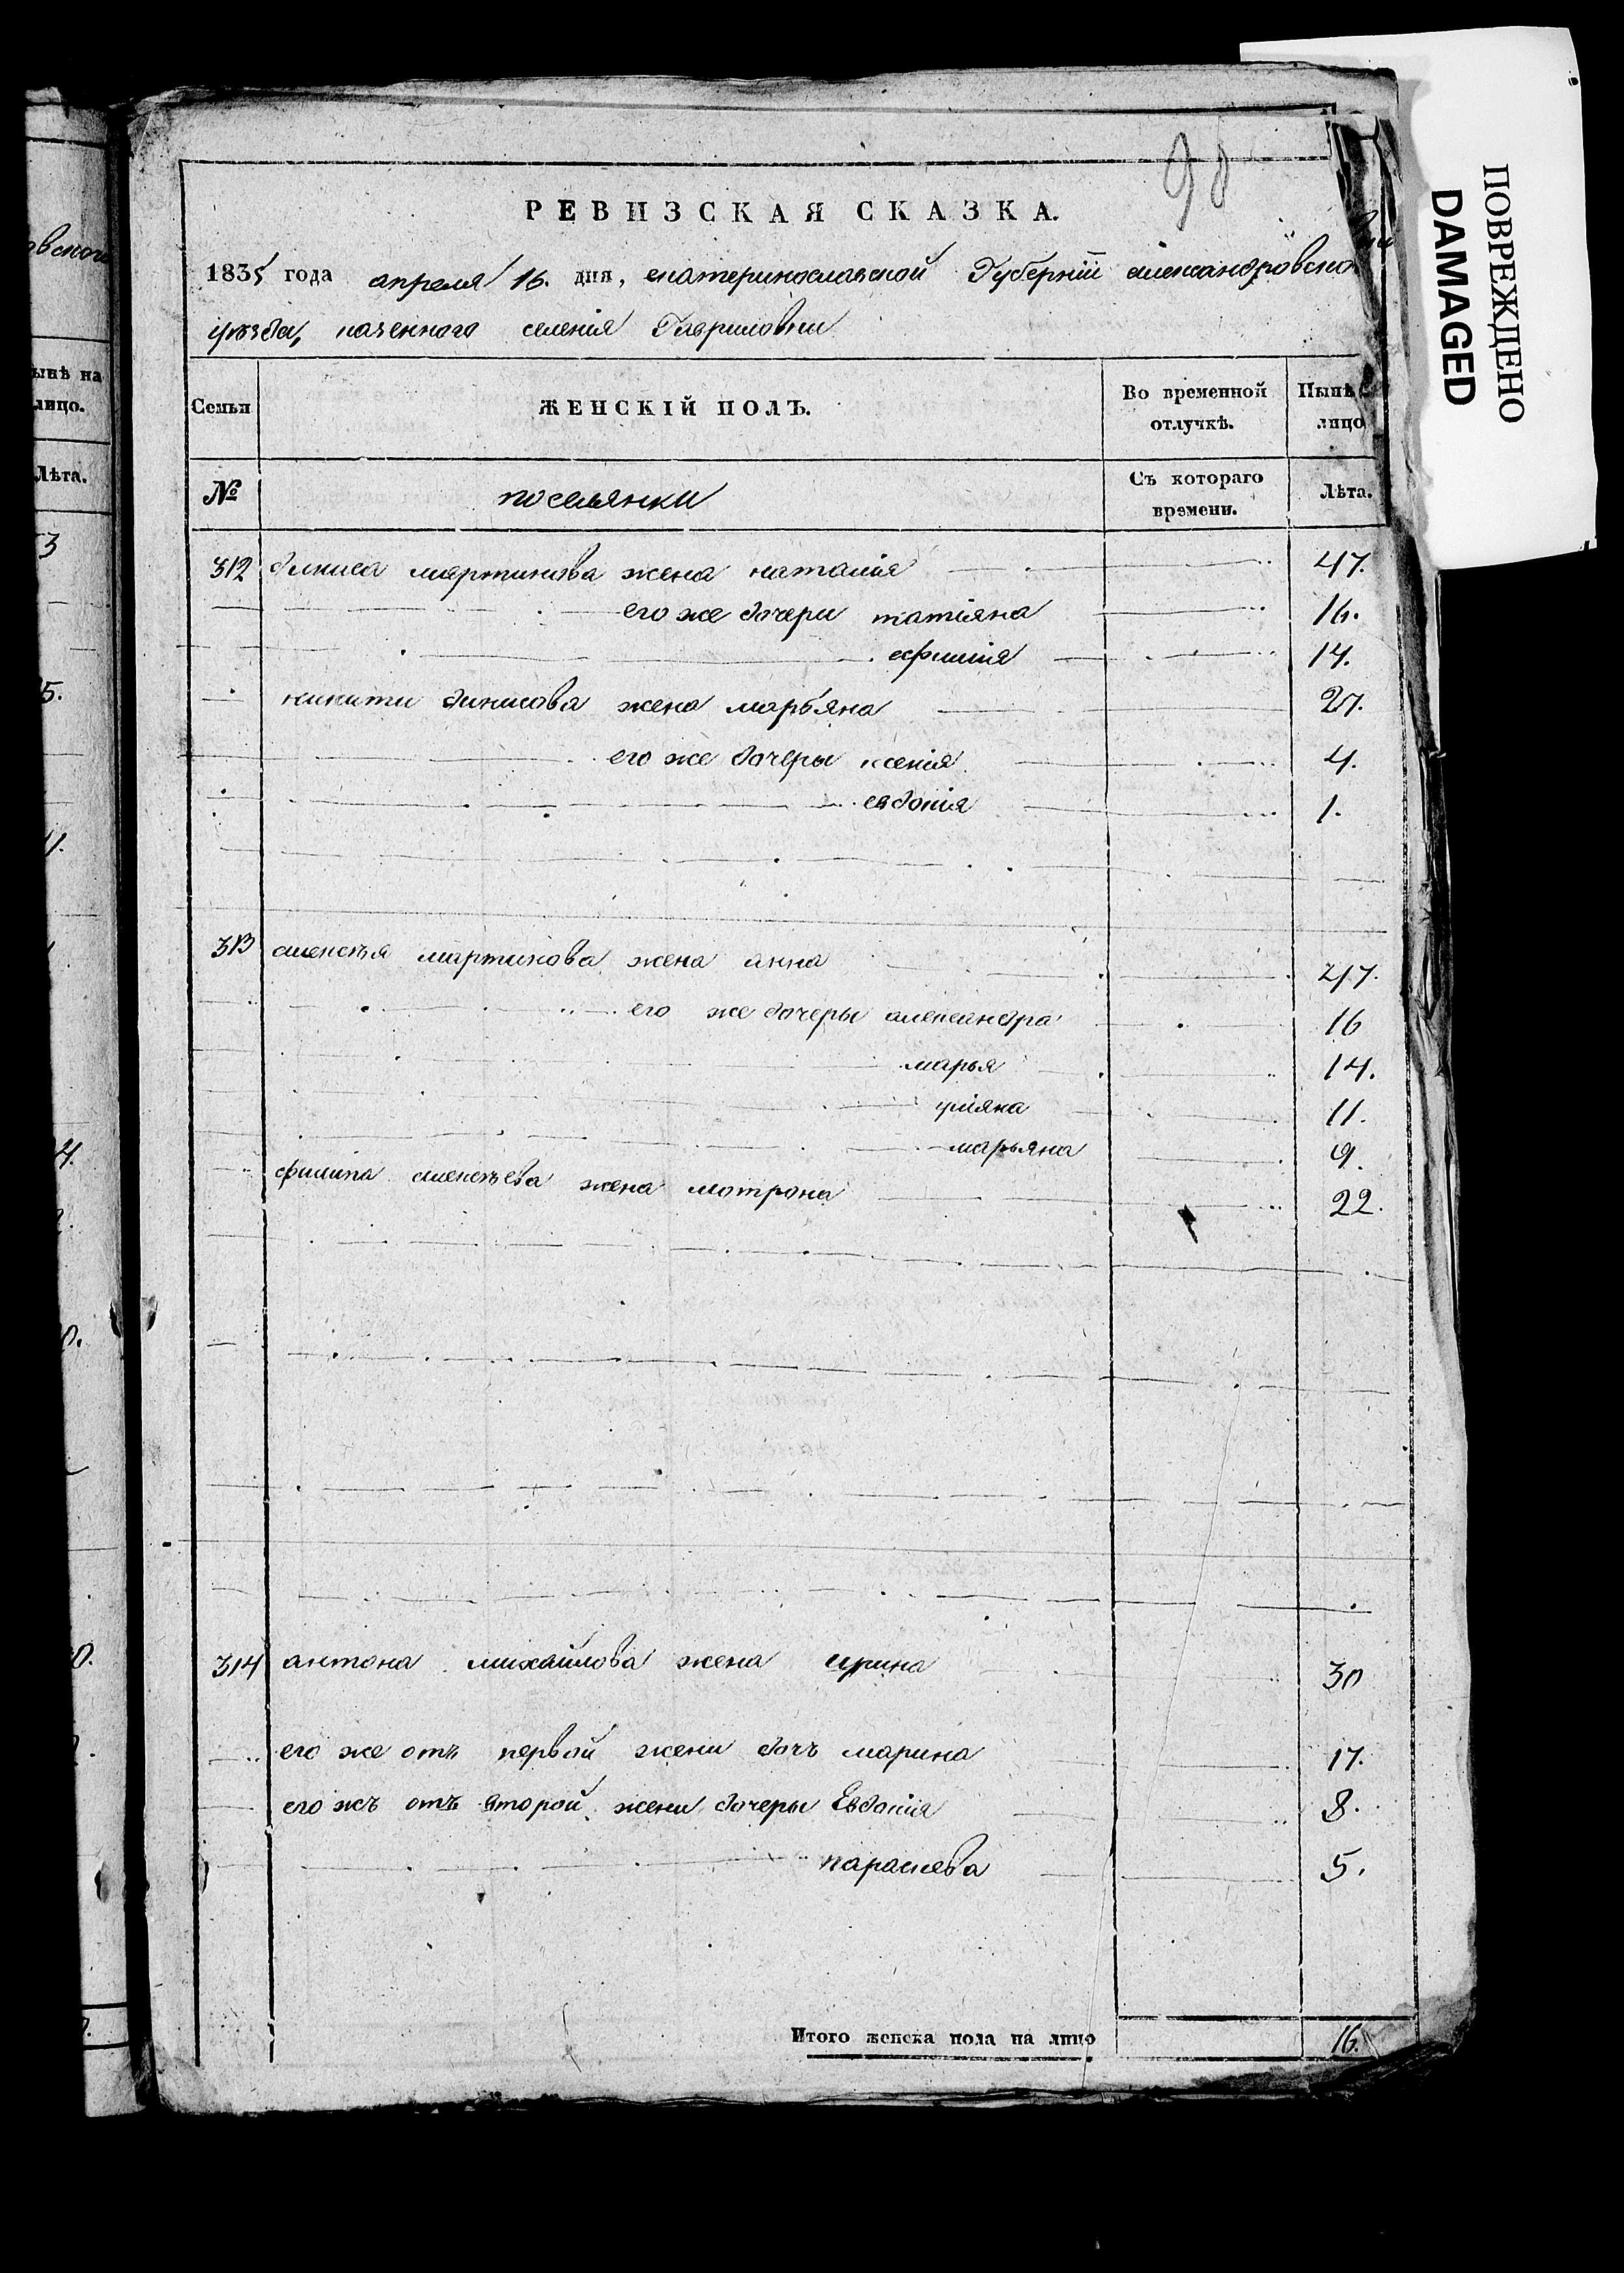 98
РЕВИЗСКАЯ СКАЗКА.
1835 года апреля 16. дня, екатеринославской Губерніи александровско
уѣзда, казенного селенія Гавриловки
Семьи
ЖЕНСКІЙ ПОЛЪ.
Во временной отлучкѣ.
Нынѣ лицо
№
поселянки
Съ котораго времени.
Лѣта.
312 дениса мартинова жена наталія 47.
его же дочери татіяна 16.
афимія 14.
никити динисова жена марьяна 27.
его же дочеры ксенія 4.
евдокія 1.
313 алексѣя мартинова жена анна 47.
его же дочеры александра 16
марья 14.
уліяна 11.
марьяна 9.
филипа алексѣева жена мотрона 22.
314 антона михайлова жена ирина 30
его же отъ первой жени дочъ марина 17.
его жъ отъ второй жени дочеры Евдокія 8.
параскева 5.
Итого женска пола на лицо 16.
ПОВРЕЖДЕНО
DAMAGED
овского
ынѣ на
лицо.
Лѣта.
3
5.